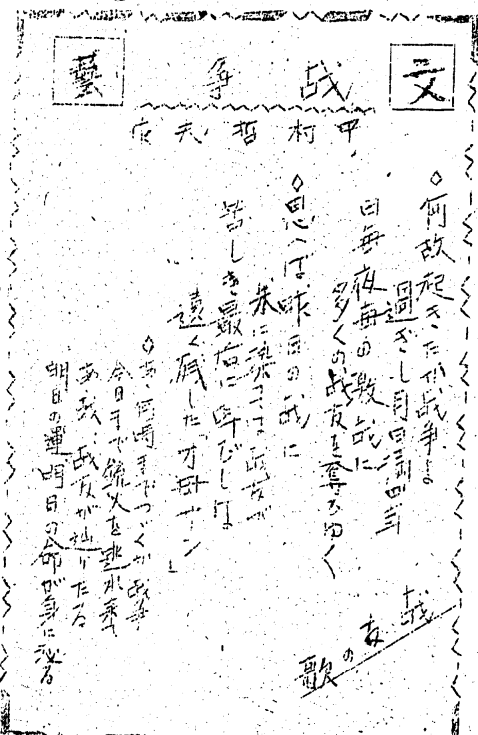 文藝
戦争
甲村哲夫
◇何故起きたか戦争よ
過ぎし月日満四年
日毎夜毎の激戦に
多くの戦友を奪ひゆく
◇思へば昨日の戦に
朱に染つては戦友が
苦しき最后に呼びしは
遠く残した「オカアサン」
◇あゝ何時までつづくか戦争
今日まで銃火を逃れ来て
あゝ我
戦友が辿りたる
明日の運明日の命が身に泌る
戦友の歌